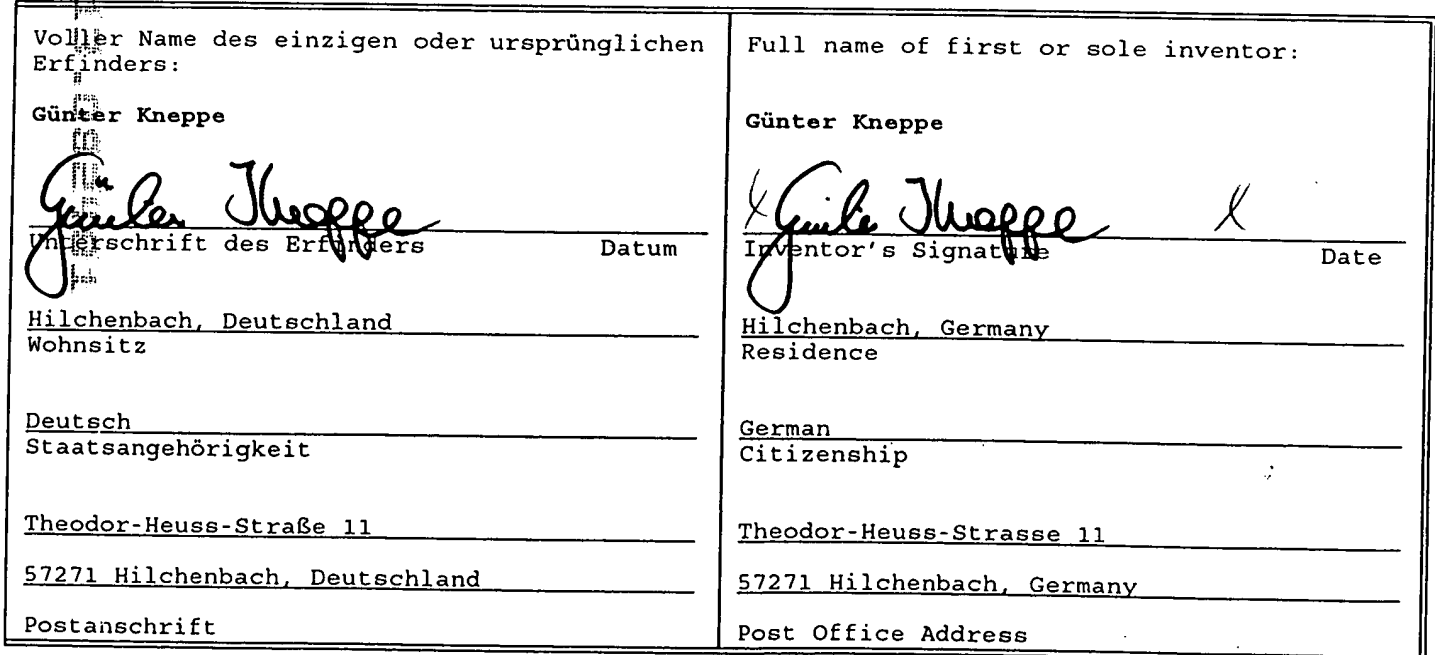 Voller Name des einzigen oder ursprünglichen
Erfinders:
Günter Kneppe
Günter Kneppe
Unterschrift des Erfinders Datum
Hilchenbach, Deutschland
Wohnsitz
Deutsch
Staatsangehörigkeit
Theodor-Heuss-Straße 11
57271 Hilchenbach, Deutschland
Postanschrift
Full name of first or sole inventor:
Günter Kneppe
X Günter Kneppe X
Inventor's Signature Date
Hilchenbach, Germany
Residence
German
Citizenship
Theodor-Heuss-Strasse 11
57271 Hilchenbach, Germany
Post Office Address